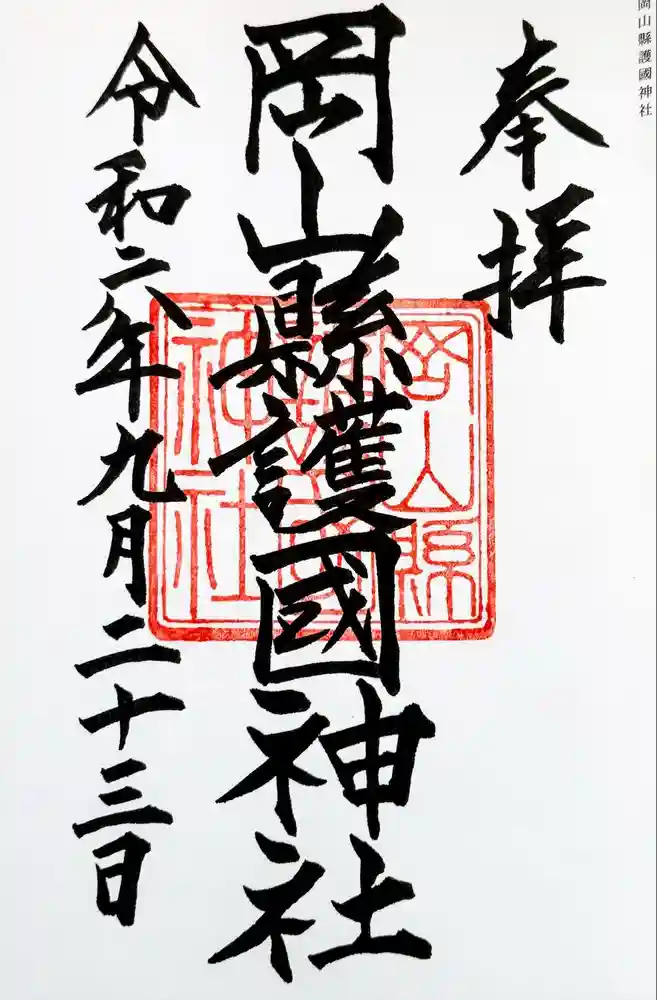 岡山縣護國神社
奉拝
岡山縣護國神社
岡山縣
護國
神社
令和六年九月二十三日